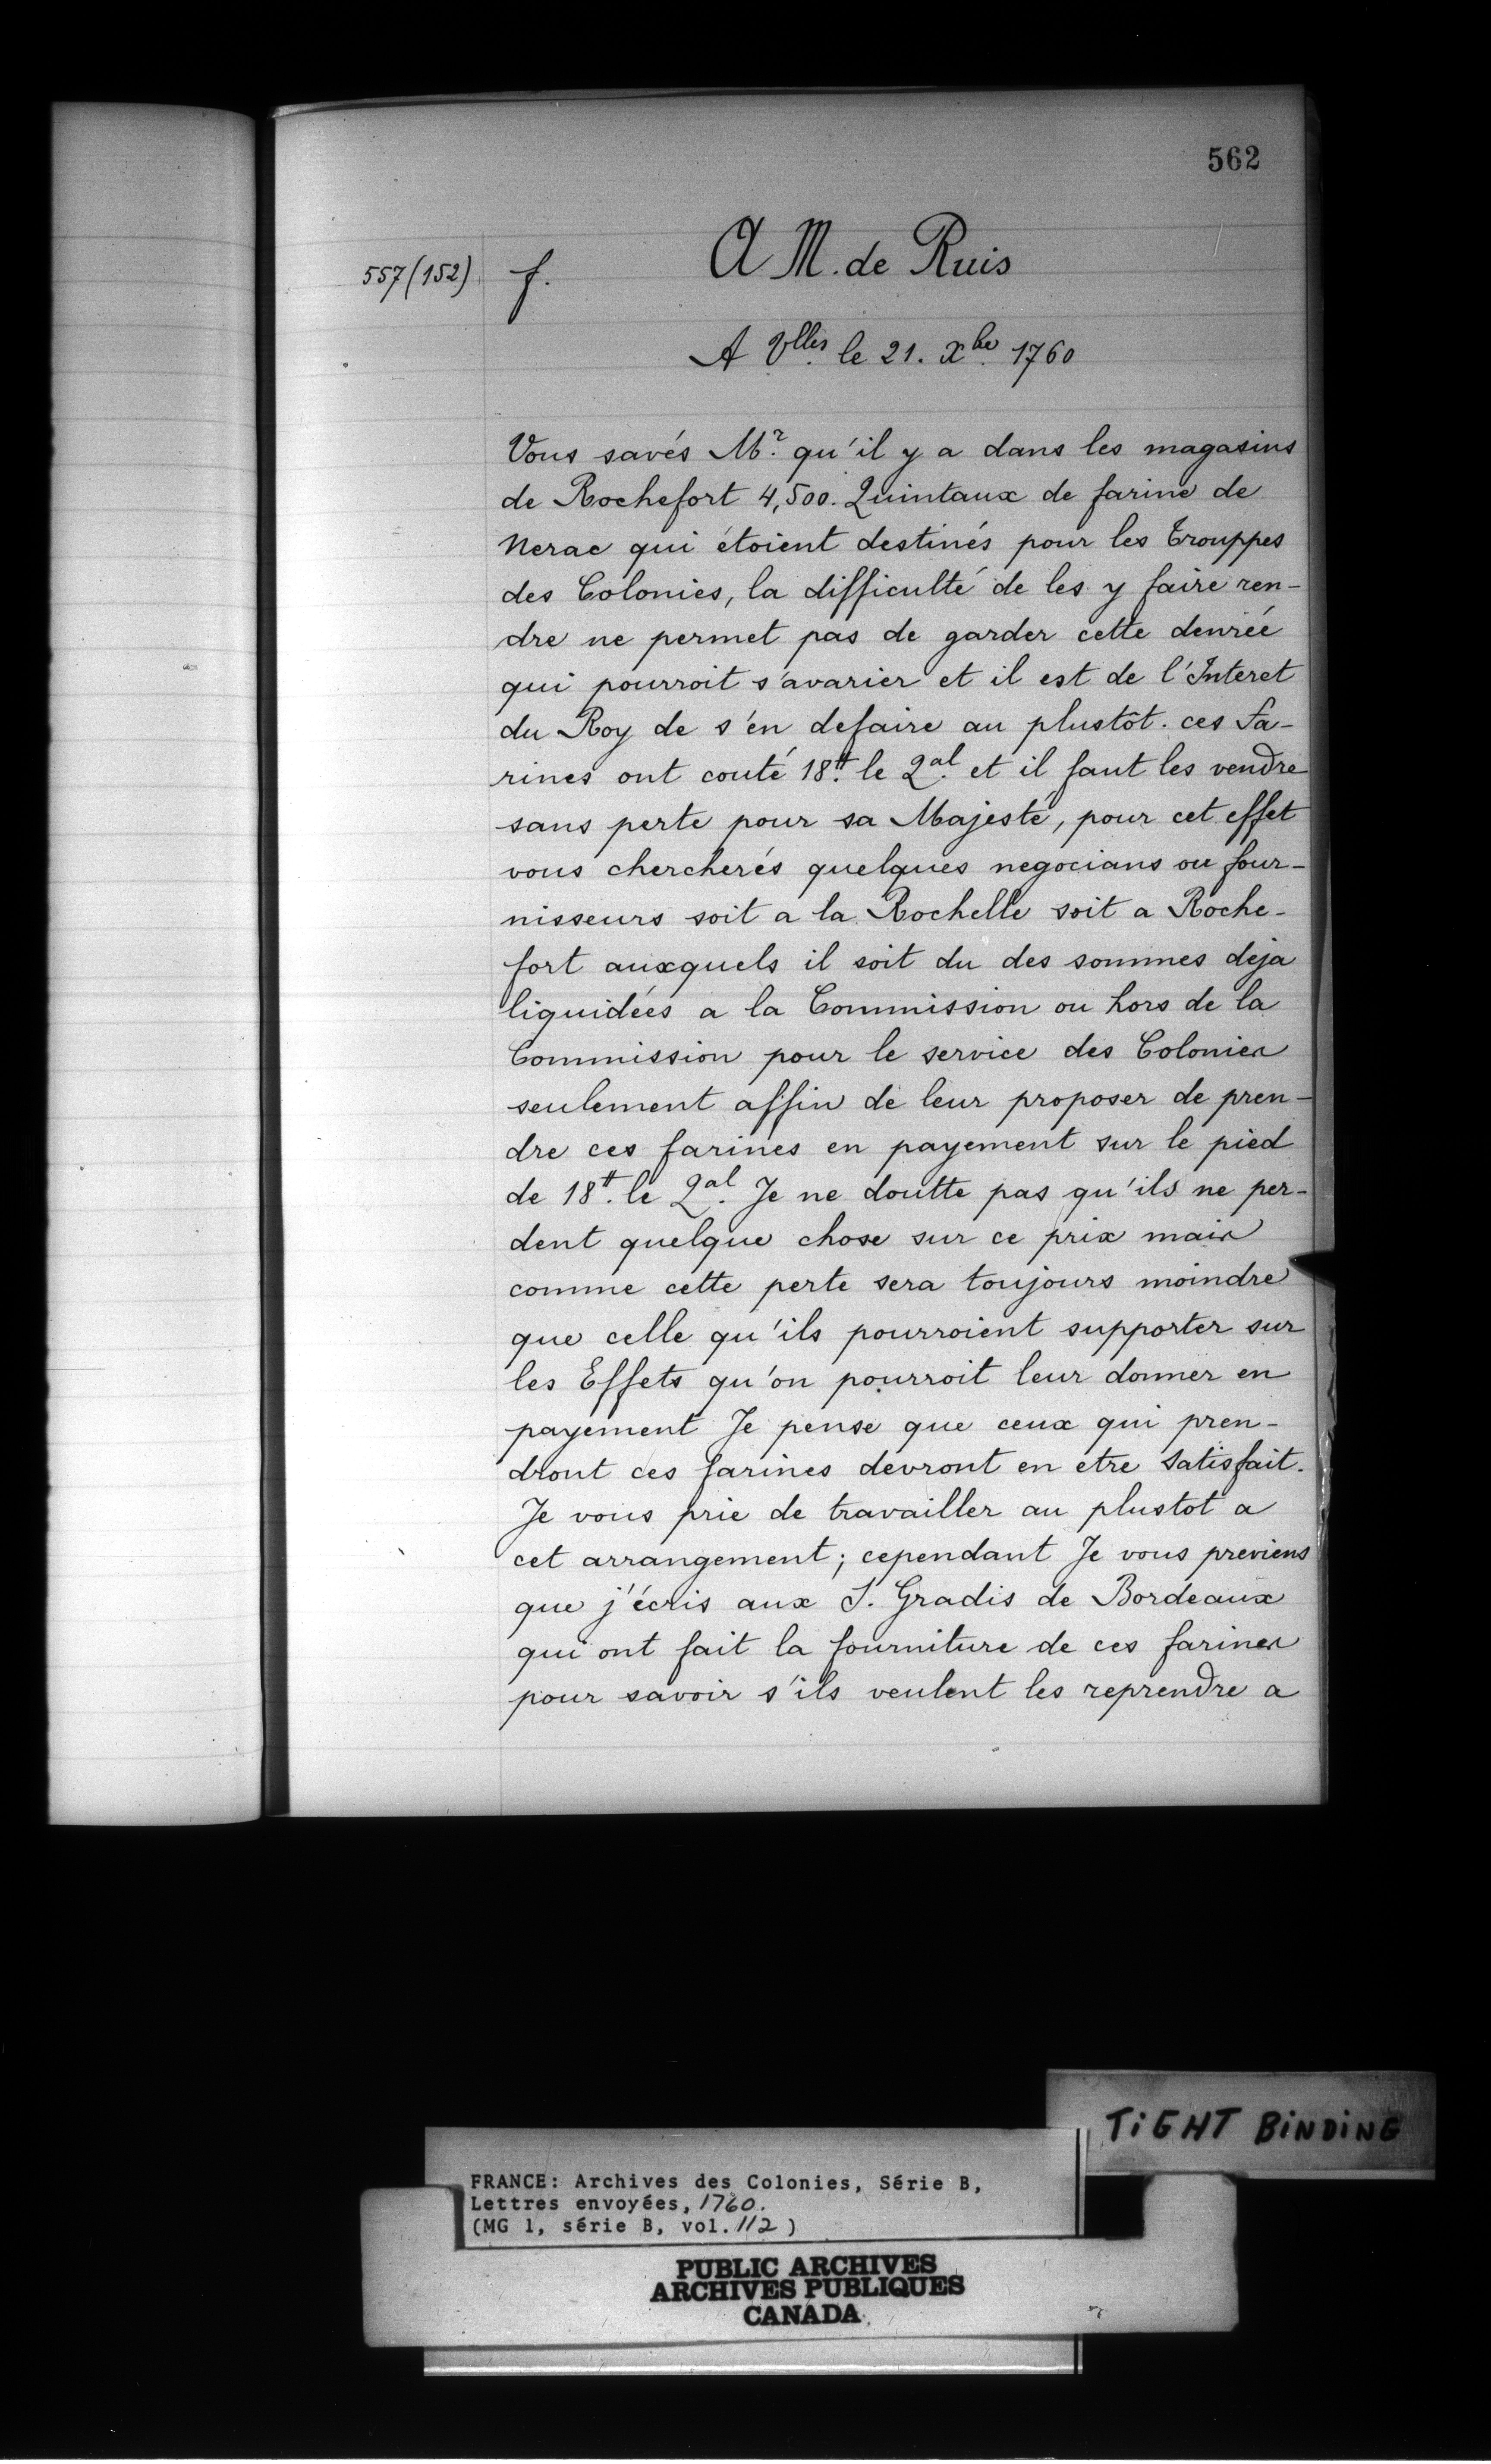 562
557 (152) f. A M. de Ruis
A Vlles. le 21. Xbe. 1760
Vous savés Mr. qu'il y a dans les magasins
de Rochefort 4,500. Quintaux de farine de
Nerac qui étoient destinés pour les trouppes
des Colonies, la difficulté de les y faire ren-
dre ne permet pas de garder cette denrée
qui pourroit s'avarier et il est de l'Interet
du Roy de s'en defaire au plustôt. ces fa-
rines ont couté 18tt. le Qal. et il faut les vendre
sans perte pour sa Majesté, pour cet effet
vous chercherés quelques negocians ou four-
nisseurs soit a la Rochelle soit a Roche-
fort auxquels il soit du des sommes deja
liquidées a la Commission ou hors de la
Commission pour le service des Colonies
seulement affin de leur proposer de pren-
dre ces farines en payement sur le pied
de 18tt. le Qal. Je ne doutte pas qu'ils ne per-
dent quelque chose sur ce prix mais
comme cette perte sera toujours moindre
que celle qu'ils pourroient supporter sur
les Effets qu'on pourroit leur donner en
payement Je pense que ceux qui pren-
dront ces farines devront en etre satisfait.
Je vous prie de travailler au plustot a
cet arrangement; cependant Je vous previens
que j'écris aux S. Gradis de Bordeaux
qui ont fait la fourniture de ces farines
pour savoir s'ils veulent les reprendre a
TIGHT BINDING
FRANCE: Archives des Colonies, Série B,
Lettres envoyées, 1760.
(MG 1, série B, vol. 112)
PUBLIC ARCHIVES
ARCHIVES PUBLIQUES
CANADA